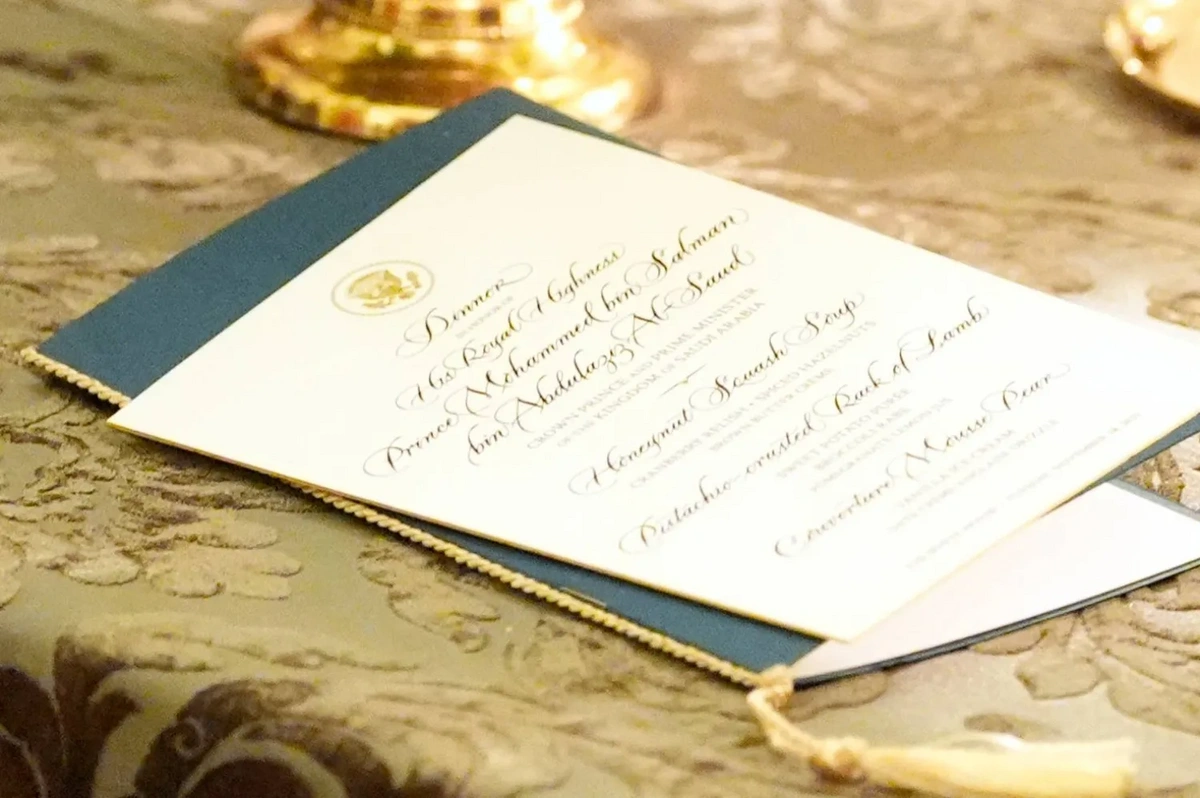 Dinner
IN HONOR OF
His Royal Highness
Prince Mohammed bin Salman
bin Abdulaziz Al-Saud
CROWN PRINCE AND PRIME MINISTER
OF THE KINGDOM OF SAUDI ARABIA
Honeynut Squash Soup
CRANBERRY RELISH • SPICED HAZELNUTS
BROWN BUTTER CRÈME
Pistachio-crusted Rack of Lamb
SWEET POTATO PUREE
Couverture Mousse Pear
VANILLA ICE CREAM